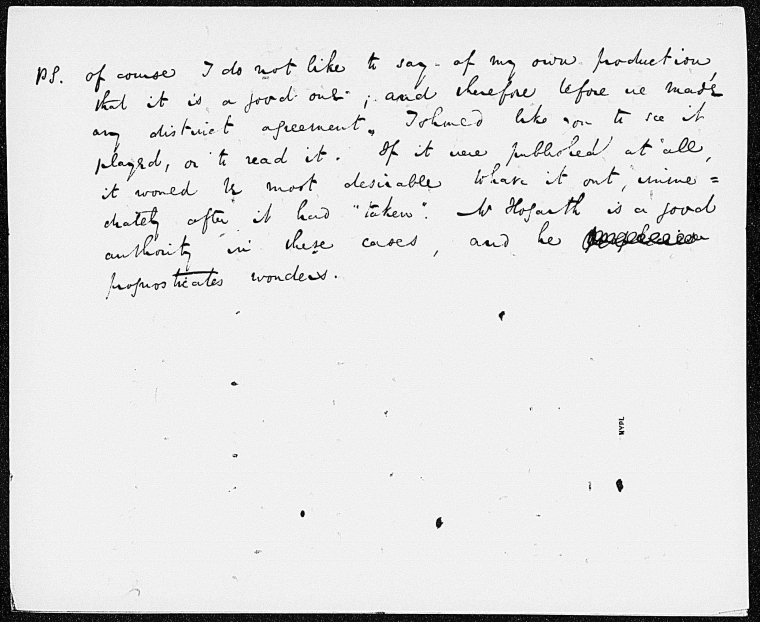 PS. of course I do not like to say - of my own production,
that it is a good one - ; and therefore before we made
any distinct agreement, I should like you to see it
played, or to read it. If it were published at all,
it would be most desirable to have it out, imme=
diately after it had "taken". Mr Hogarth is a good
authority in these cases, and he
prognosticates wonders.
NYPL